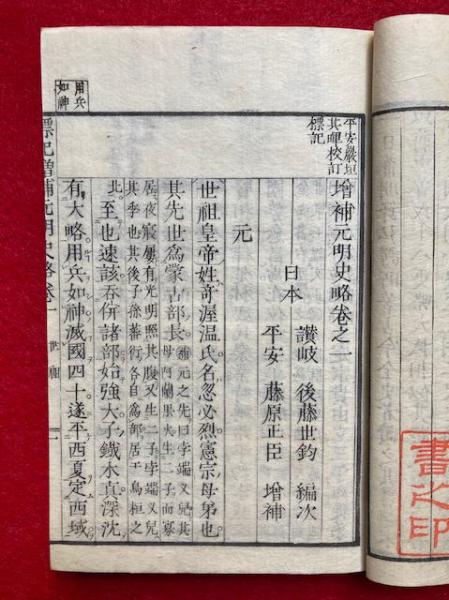 平安巖垣
其暉校訂
標記
增補元明史略卷之一
日本 讚岐 後藤世鈞 編次
平安 藤原正臣 增補
元
世祖皇帝姓奇渥溫氏名忽必烈憲宗母弟也
其先世爲蒙古部長補元之先曰孛端叉兒
母阿蘭果火生二子而寡
居夜寢屢有光明照其腹又生二子孛端叉兒
其季也其後子孫蕃衍各自爲部居于烏桓之
北至也速該吞併諸部始強大子鐵木真深沈
有大略用兵如神滅國四十遂平西夏定西域
用兵
如神
標記增補元明史略卷一 世祖 一
書之印